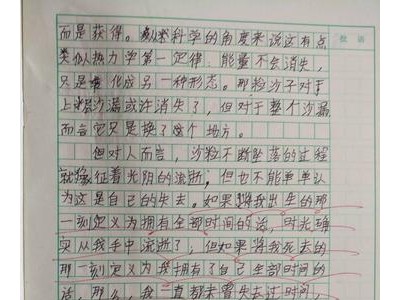 而是获得。从科学的角度来说这有点
类似热力学第一定律，能量不会消失，
只是转化成另一种形态。那粒沙子对于
上部沙漏或许消失了，但对于整个沙漏
而言它只是换了个地方。
但对人而言，沙粒不断坠落的过程
就像征着光阴的流逝，但也不能单单认
为这是自己的失去。如果将我出生的那
一刻定义为拥有全部时间的话，时光确
实从我手中流逝了，但如果将我死去的
那一刻定义为我拥有了自己全部时间的
话，那么，我一直都未曾失去过时间，